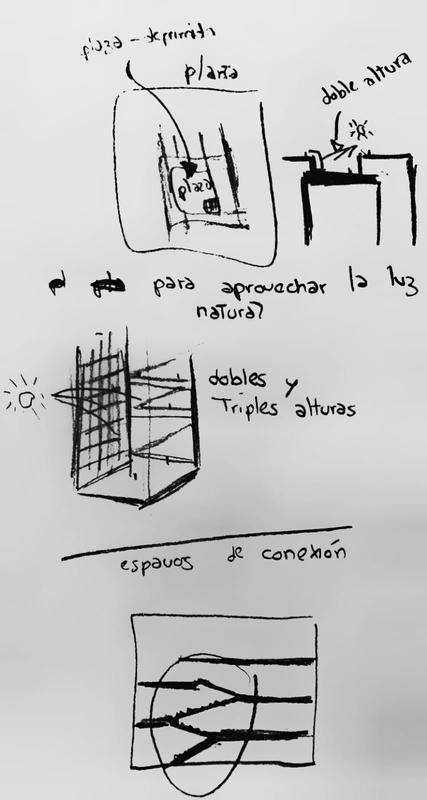 plaza - deprimida
planta
doble altura
plaza
para aprovechar la luz
natural
dobles y
Triples alturas
espacios de conexión